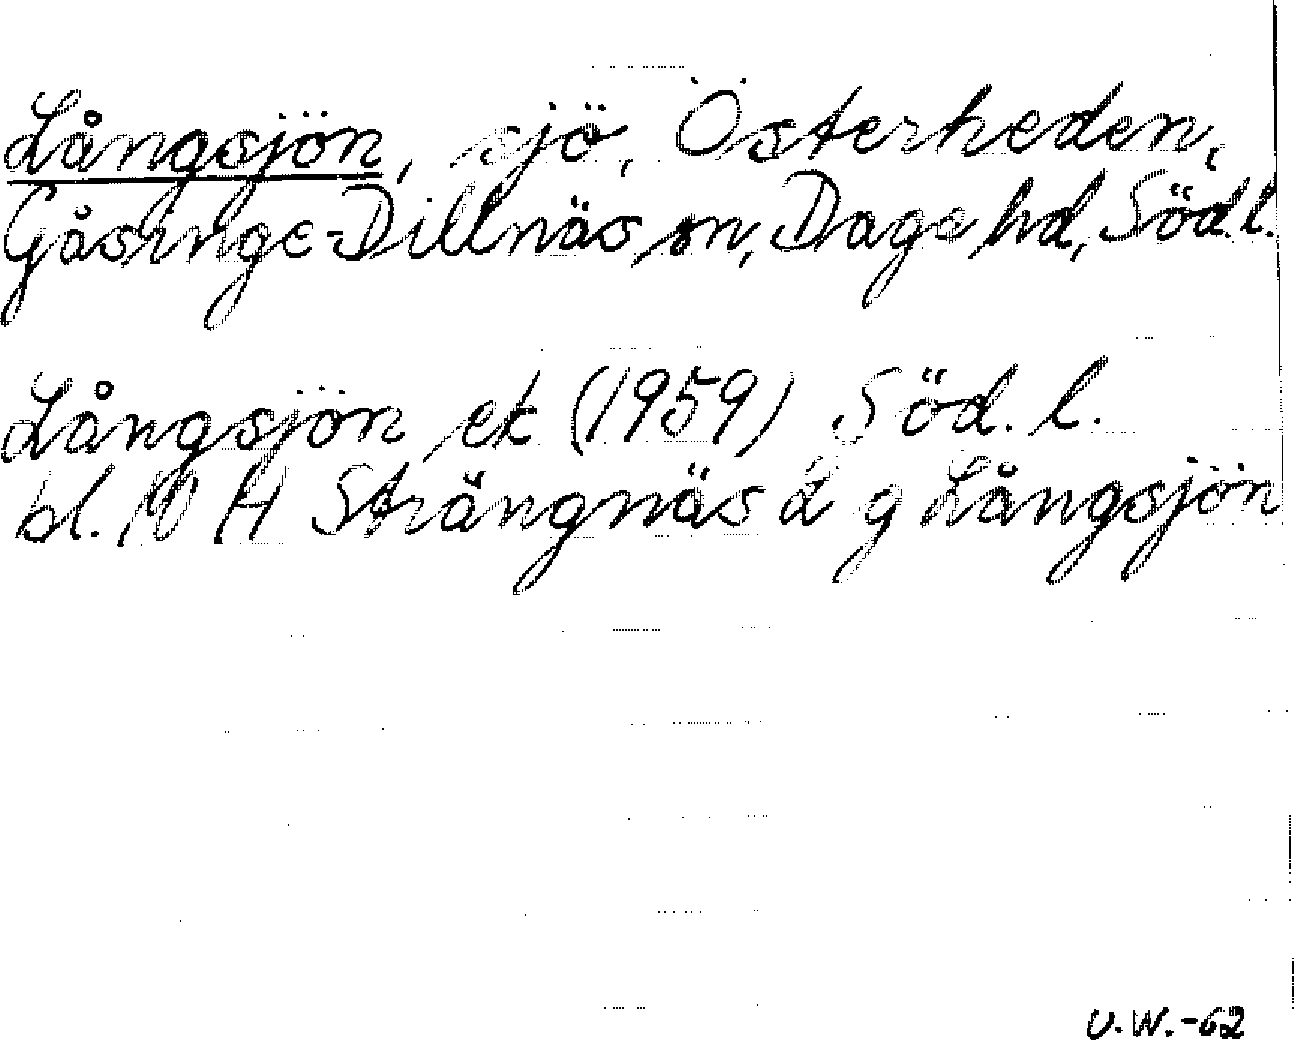 Långsjön, sjö, Österheden,
Gåsinge-Dillnäs sn, Daga hd, Söd. l.
Långsjön ek (1959) Söd. l.
bl. 10 H Strängnäs 2 g Långsjön
U.W.-62